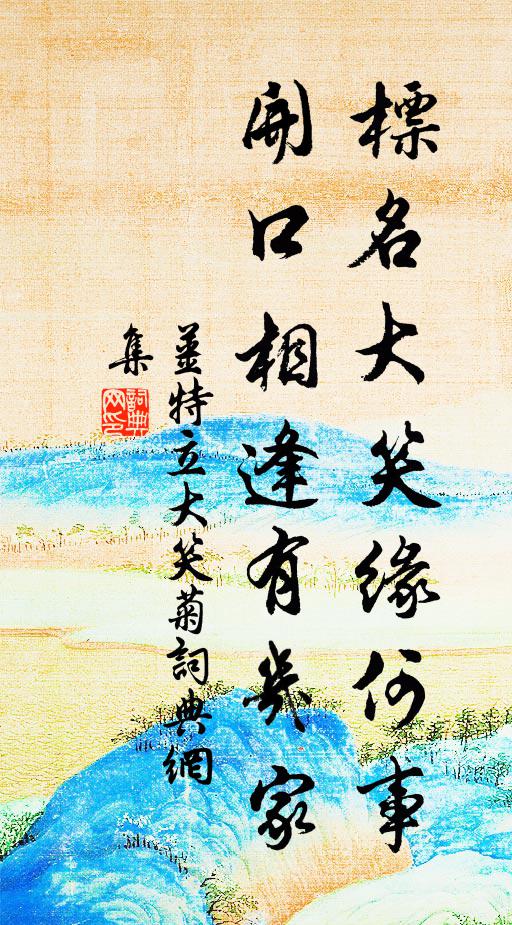 標名大笑緣何事
開口相逢有幾家
姜特立大笑菊詞典網
集
詞典
网印